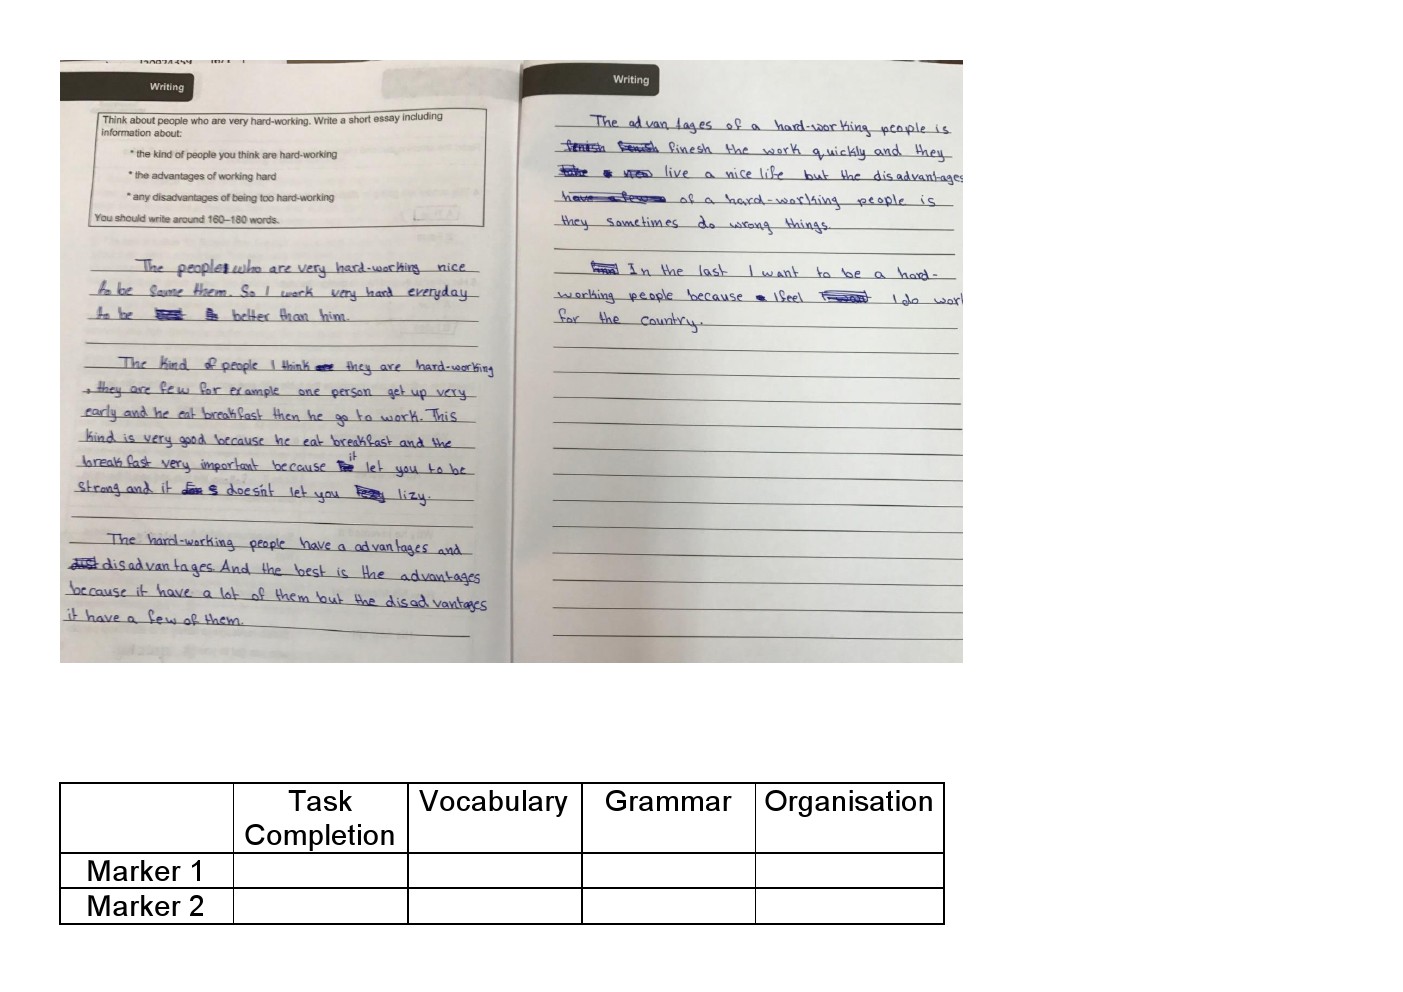 Writing
Think about people who are very hard-working. Write a short essay including
information about:
* the kind of people you think are hard-working
* the advantages of working hard
* any disadvantages of being too hard-working
You should write around 160–180 words.
The people who are very hard-working nice
to be same them. So I work very hard everyday
to be better than him.
The kind of people I think they are hard-working
, they are few for example one person get up very
early and he eat breakfast then he go to work. This
kind is very good because he eat breakfast and the
breakfast very important because it let you to be
strong and it doesn't let you lizy.
The hard-working people have a advantages and
disadvantages. And the best is the advantages
because it have a lot of them but the disadvantages
it have a few of them.
Writing
The advantages of a hard-working people is
finesh the work quickly and they
live a nice life but the disadvantages
of a hard-working people is
they sometimes do wrong things.
In the last I want to be a hard-
working people because I feel I do work
for the country.
Task Completion Vocabulary Grammar Organisation
Marker 1
Marker 2